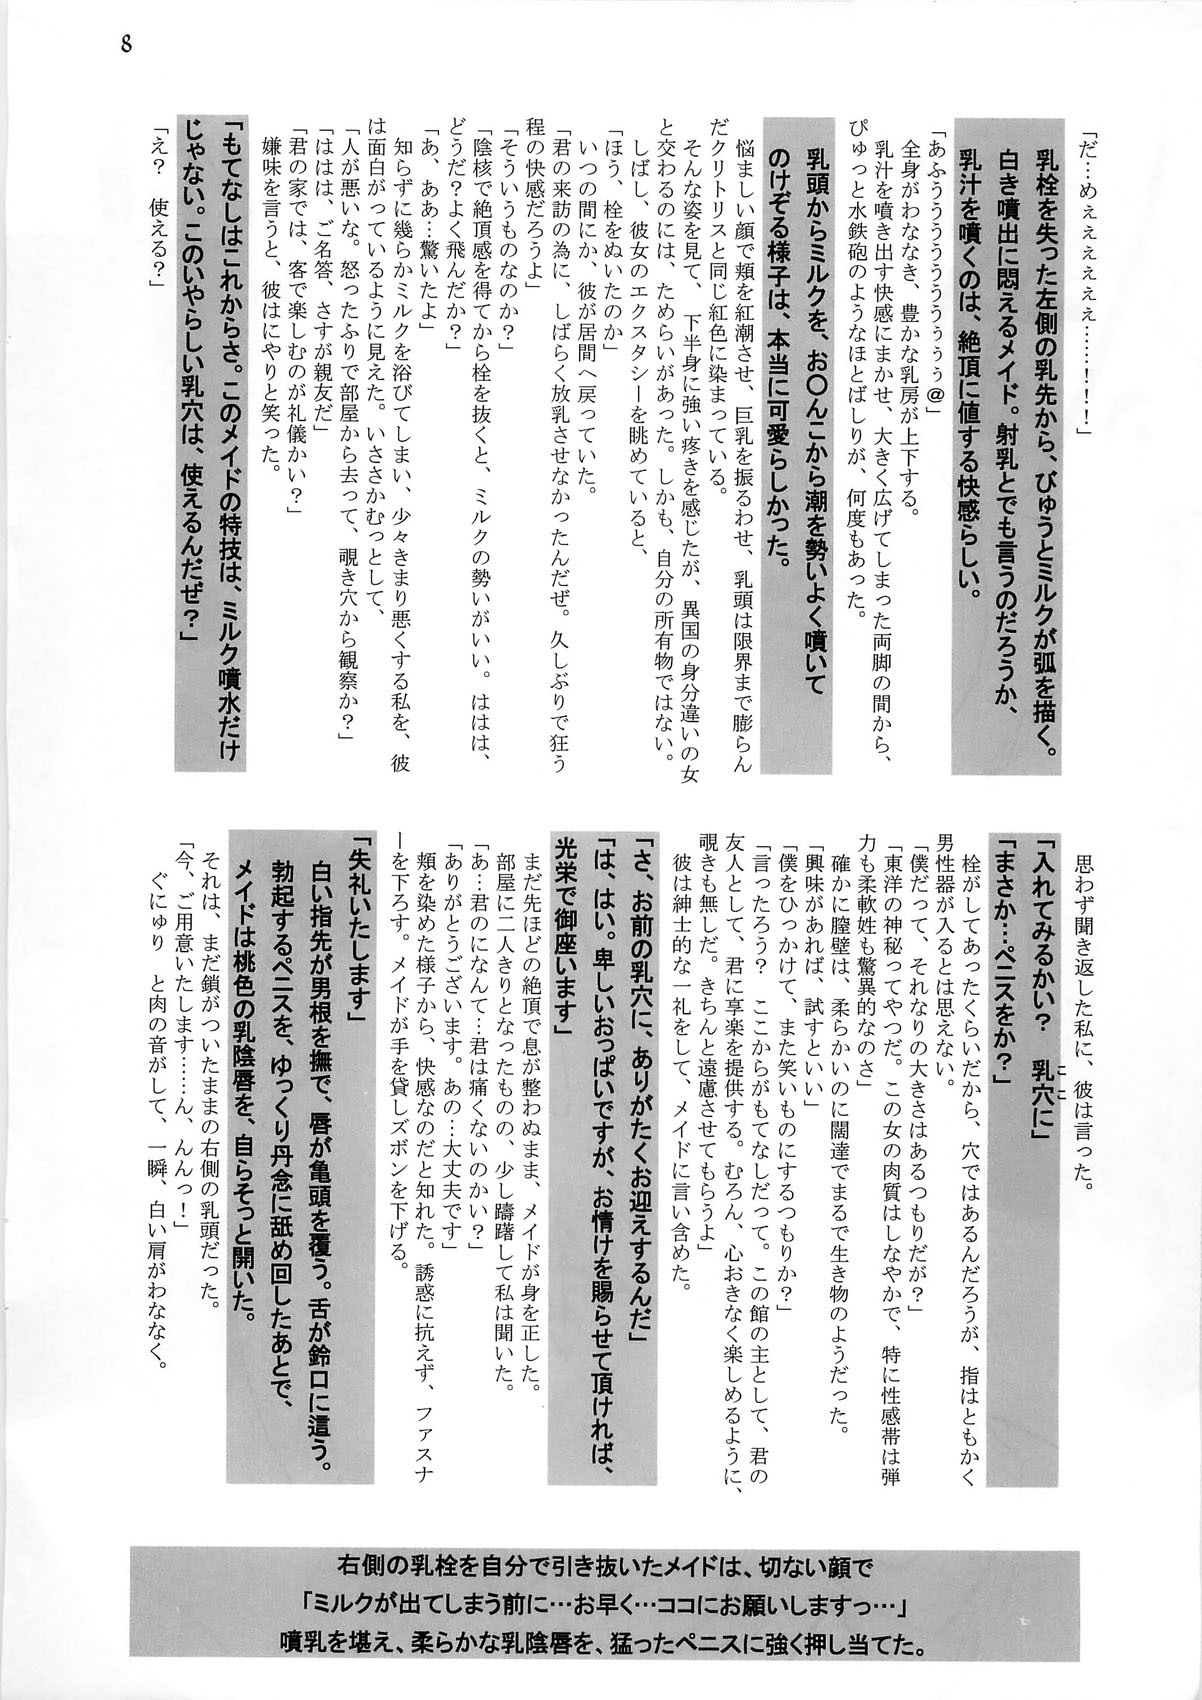 8
「だ…めぇぇぇぇぇぇ……!!!」
乳栓を失った左側の乳先から、びゅうとミルクが弧を描く。
白き噴出に悶えるメイド。射乳とでも言うのだろうか、
乳汁を噴くのは、絶頂に値する快感らしい。
「あふうううううううぅぅぅ＠」
全身がわななき、豊かな乳房が上下する。
乳汁を噴き出す快感にまかせ、大きく広げてしまった両脚の間から、
ぴゅっと水鉄砲のようなほとばしりが、何度もあった。
乳頭からミルクを、お〇んこから潮を勢いよく噴いて
のけぞる様子は、本当に可愛らしかった。
悩ましい顔で頬を紅潮させ、巨乳を振るわせ、乳頭は限界まで膨らん
だクリトリスと同じ紅色に染まっている。
そんな姿を見て、下半身に強い疼きを感じたが、異国の身分違いの女
と交わるのには、ためらいがあった。しかも、自分の所有物ではない。
しばし、彼女のエクスタシーを眺めていると、
「ほう、栓をぬいたのか」
いつの間にか、彼が居間へ戻っていた。
「君の来訪の為に、しばらく放乳させなかったんだぜ。久しぶりで狂う
程の快感だろうよ」
「そういうものなのか？」
「陰核で絶頂感を得てから栓を抜くと、ミルクの勢いがいい。ははは、
どうだ？よく飛んだか？」
「あ、ああ…驚いたよ」
知らずに幾らかミルクを浴びてしまい、少々きまり悪くする私を、彼
は面白がっているように見えた。いささかむっとして、
「人が悪いな。怒ったふりで部屋から去って、覗き穴から観察か？」
「ははは、ご名答、さすが親友だ」
「君の家では、客で楽しむのが礼儀かい？」
嫌味を言うと、彼はにやりと笑った。
「もてなしはこれからさ。このメイドの特技は、ミルク噴水だけ
じゃない。このいやらしい乳穴は、使えるんだぜ？」
「え？　使える？」
思わず聞き返した私に、彼は言った。
「入れてみるかい？　乳穴に」
ここ
「まさか…ペニスをか？」
栓がしてあったくらいだから、穴ではあるんだろうが、指はともかく
男性器が入るとは思えない。
「僕だって、それなりの大きさはあるつもりだが？」
「東洋の神秘ってやつだ。この女の肉質はしなやかで、特に性感帯は弾
力も柔軟姓も驚異的なのさ」
確かに膣壁は、柔らかいのに闊達でまるで生き物のようだった。
「興味があれば、試すといい」
「僕をひっかけて、また笑いものにするつもりか？」
「言ったろう？　ここからがもてなしだって。この館の主として、君の
友人として、君に享楽を提供する。むろん、心おきなく楽しめるように、
覗きも無しだ。きちんと遠慮させてもらうよ」
彼は紳士的な一礼をして、メイドに言い含めた。
「さ、お前の乳穴に、ありがたくお迎えするんだ」
「は、はい。卑しいおっぱいですが、お情けを賜らせて頂ければ、
光栄で御座います」
まだ先ほどの絶頂で息が整わぬまま、メイドが身を正した。
部屋に二人きりとなったものの、少し躊躇して私は聞いた。
「あ…君のになんて…君は痛くないのかい？」
「ありがとうございます。あの…大丈夫です」
頬を染めた様子から、快感なのだと知れた。誘惑に抗えず、ファスナ
ーを下ろす。メイドが手を貸しズボンを下げる。
「失礼いたします」
白い指先が男根を撫で、唇が亀頭を覆う。舌が鈴口に這う。
勃起するペニスを、ゆっくり丹念に舐め回したあとで、
メイドは桃色の乳陰唇を、自らそっと開いた。
それは、まだ鎖がついたままの右側の乳頭だった。
「今、ご用意いたします……ん、んんっ！」
ぐにゅり　と肉の音がして、一瞬、白い肩がわななく。
右側の乳栓を自分で引き抜いたメイドは、切ない顔で
「ミルクが出てしまう前に…お早く…ココにお願いしますっ…」
噴乳を堪え、柔らかな乳陰唇を、猛ったペニスに強く押し当てた。